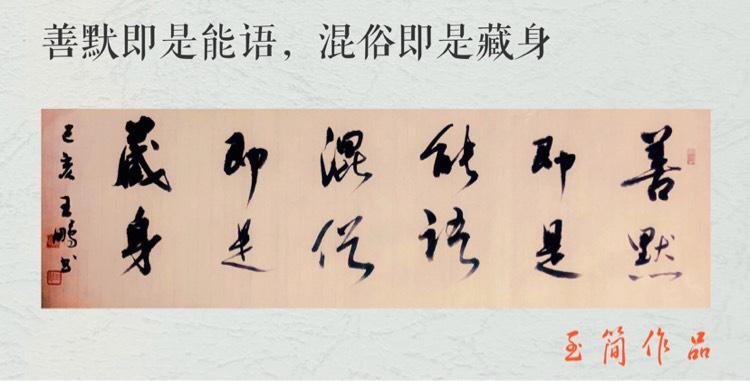 善默即是能语，混俗即是藏身
善默
即是
能语
混俗
即是
藏身
己亥王鹏书
玉简作品